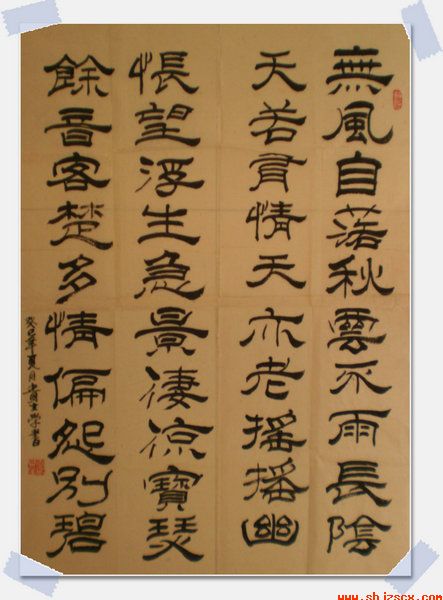 無風自落秋雲不雨長陰
天若有情天亦老搖搖幽
悵望浮生急景凄凉寶瑟
餘音客楚多情偏怨別碧
癸巳年夏月
www.shjzscx.com